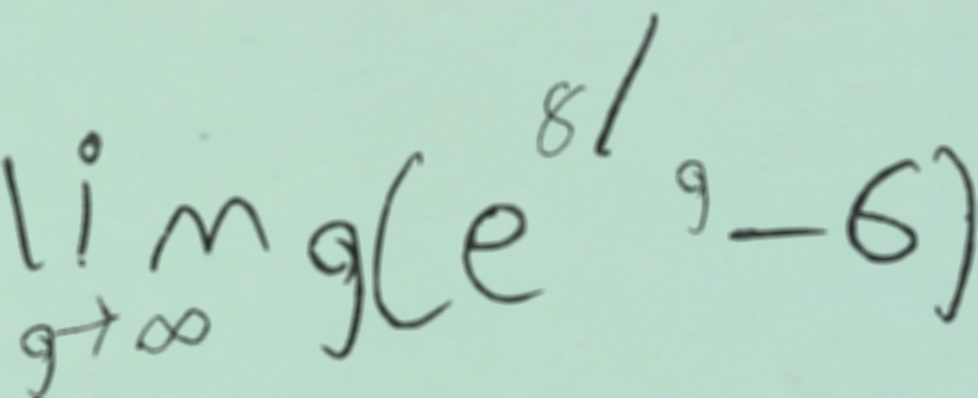 \lim_{g \to \infty} g(e^{8/g} - 6)